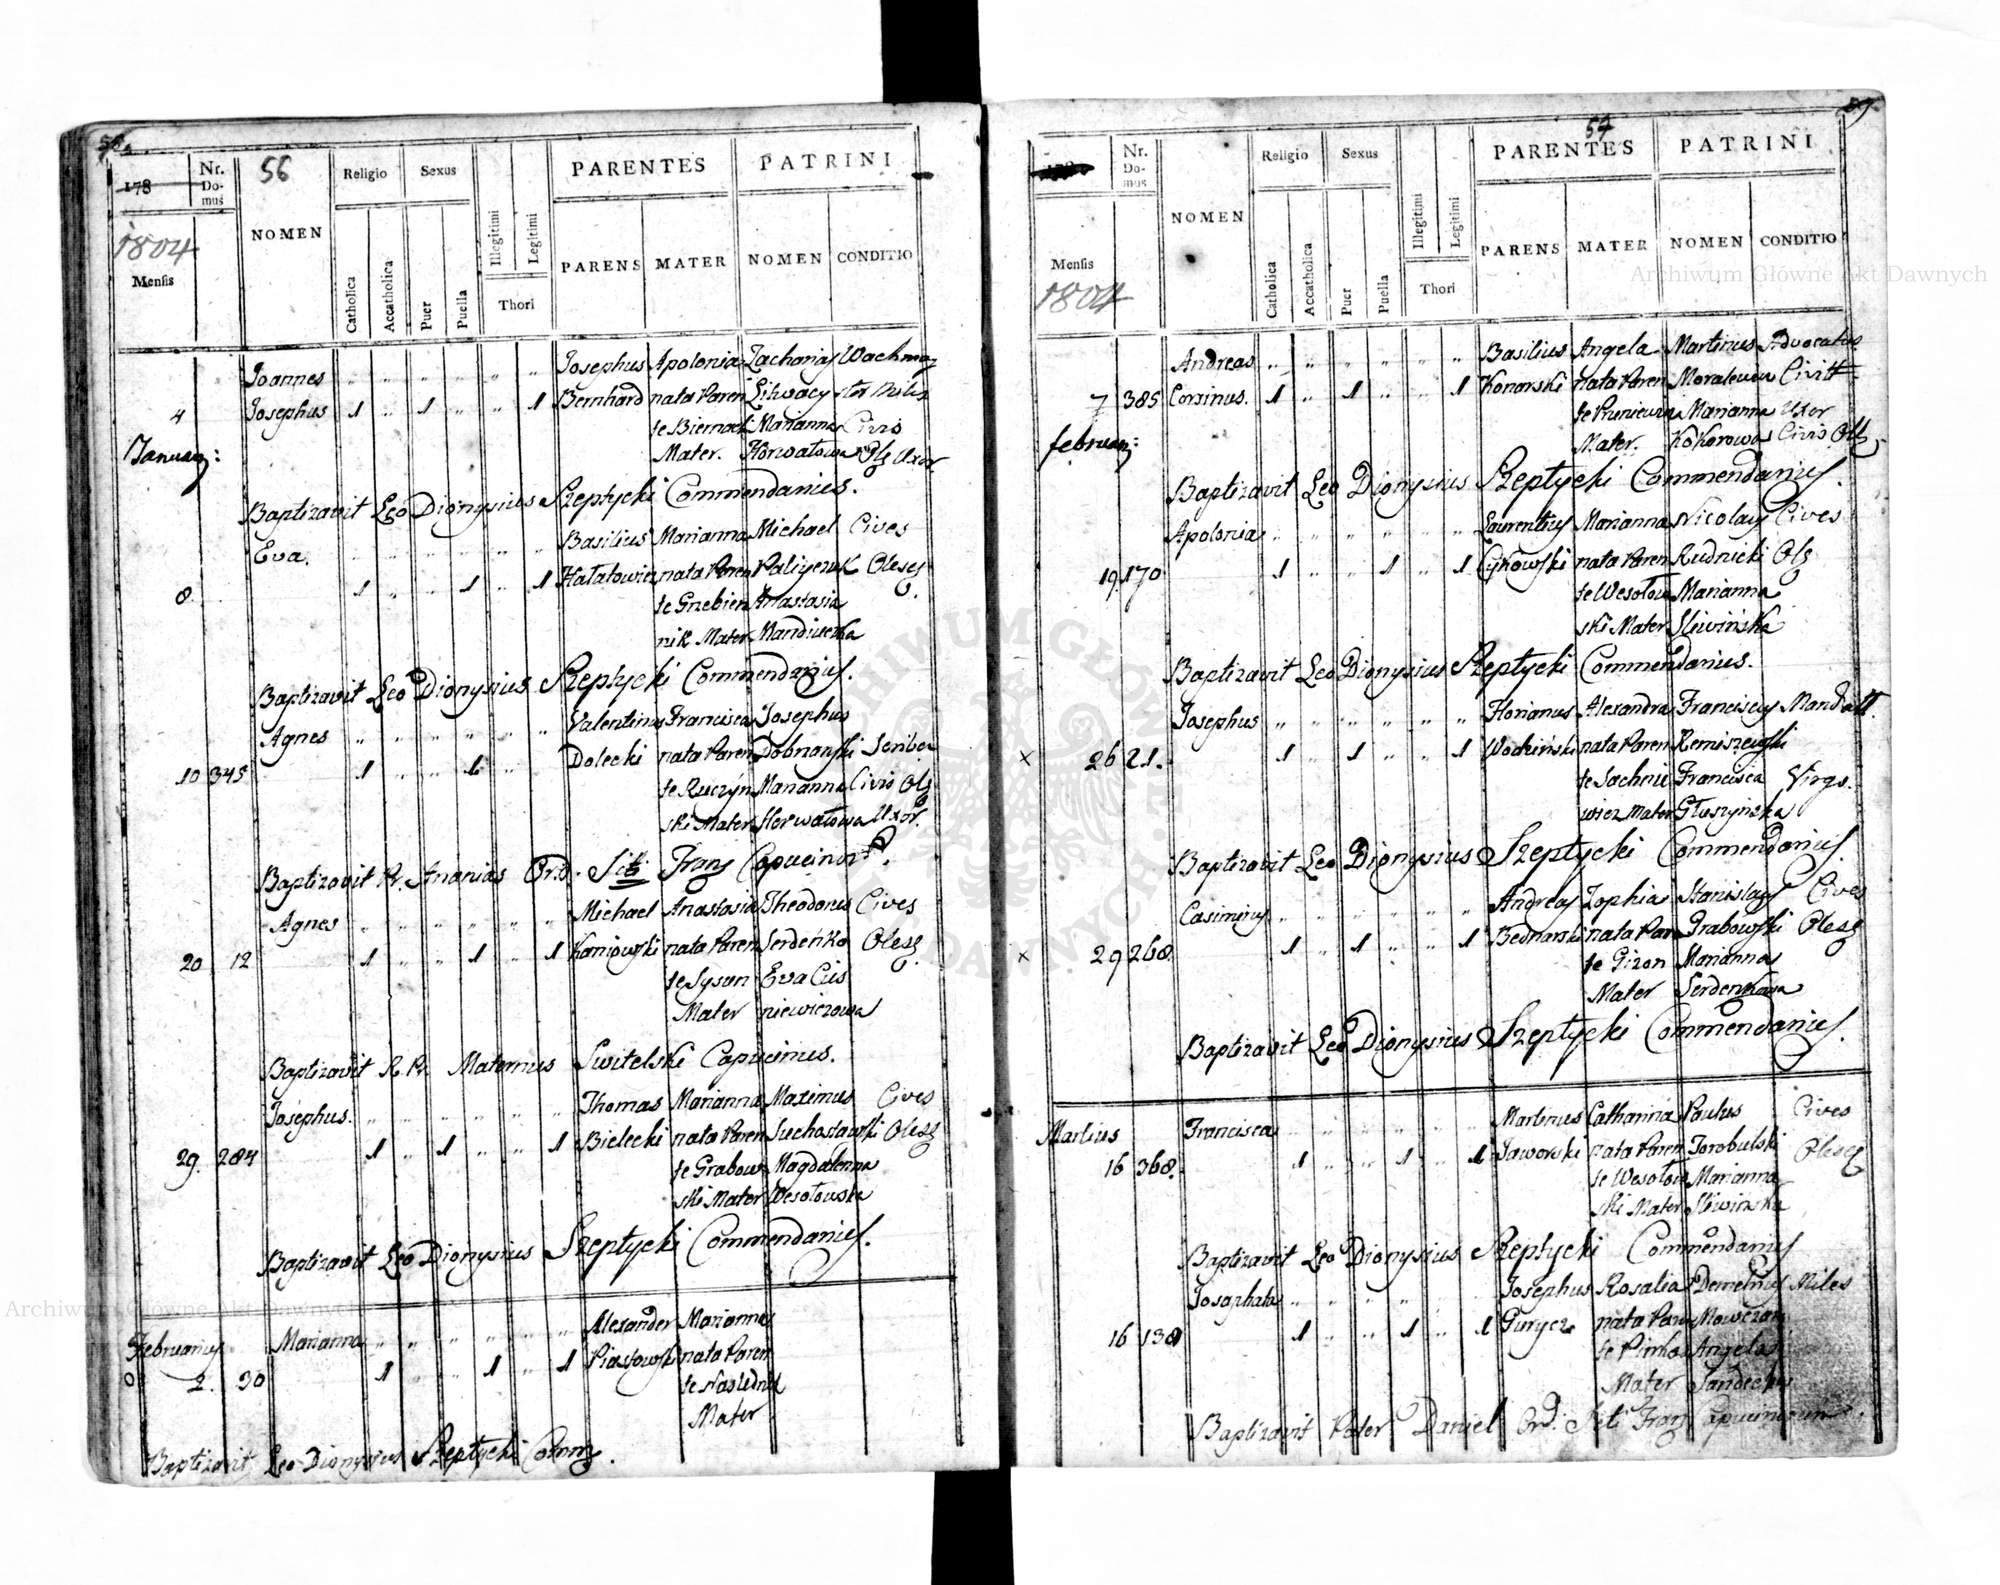 56
178
Nr. Domus
56
NOMEN
Religio
Sexus
Illegitimi
Legitimi
PARENTES
PATRINI
1804
Mensis
Catholica
Accatholica
Puer
Puella
Thori
PARENS
MATER
NOMEN
CONDITIO
Joannes Josephus Apolonia Zacharias Wachmay
4 Josephus 1 1 1 Bernhard nata Paren Litwacy ster Miles
te Biernack Marianna Civis
Januarj: Mater. Horwatowa Ols Uxor
Baptizavit Leo Dionysius Szeptycki Commendanius.
Eva. Basilius Marianna Michael Cives
8 1 1 1 Hałatowicz nata Paren Paliyczuk Olesz
te Grzebien Anastasia
nik Mater Mandiuczka
Baptizavit Leo Dionysius Szeptycki Commendanius.
Agnes Valentinus Francisca Josephus
10 345 1 1 Dolecki nata Paren Dobnowski Scriba
te Ruczyn Marianna Civis Ols
ski Mater Horwatowa Uxor.
Baptizavit Pr. Ananias Ord. Scti Franz Capucinor.
Agnes Michael Anastasia Theodorus Cives
20 12 1 1 1 Kaniowski nata Paren Serdeńko Olesz
te Sysan Eva Cuis
Mater niewiczowa
Baptizavit R. Pr. Maternus Switelski Capucinus.
Josephus. Thomas Marianna Maximus Cives
29. 284 1 1 1 Bielecki nata Paren Suchosławski Olesz
te Grabow Magdalenna
ski Mater Wesołowska
Baptizavit Leo Dionysius Szeptycki Commendanius.
Februarius Marianna Alexander Marianna
2. 30 1 1 1 Piastowski nata Paren
te Naslednik
Mater
Baptizavit Leo Dionysius Szeptycki Comm.
59.
57
Nr. Domus
NOMEN
Religio
Sexus
Illegitimi
Legitimi
PARENTES
PATRINI
Mensis
1804
Catholica
Accatholica
Puer
Puella
Thori
PARENS
MATER
NOMEN
CONDITIO
Andreas Basilius Angela Martinus Advocatus
7 385 Corsinus. 1 1 1 Konarski nata Paren Moralewicz Civitt.
te Marianna Uxor
februarj: Mater. Kokorowa Civis Ols
Baptizavit Leo Dionysius Szeptycki Commendanius.
Apolonia Laurentius Marianna Nicolay Cives
19. 170 1 1 1 Cykowski nata Paren Rudnicki Ols
te Wesołow Marianna
ski Mater Sliwińska
Baptizavit Leo Dionysius Szeptycki Commendanius.
Josephus Florianus Alexandra Franciscus Mandatt.
x 26 21. 1 1 1 Wodziński nata Paren Remiszewski
te Sachnie Francisca Virgo.
wicz Mater Głuszynska
Baptizavit Leo Dionysius Szeptycki Commendanius.
Casimirus Andreas Zophia Stanislaus Cives
x 29 268 1 1 1 Bednarski nata Paren Grabowski Olesz
te Gizon Marianna
Mater Serdenkowa
Baptizavit Leo Dionysius Szeptycki Commendanius.
Martius Francisca Martinus Catharina Paulus Cives
16 368. 1 1 1 Jaworski nata Paren Torobulski Olesz
te Wesołow Marianna
ski Mater Sliwinska
Baptizavit Leo Dionysius Szeptycki Commendanius
Josaphata Josephus Rosalia Demetrius Miles
16 138 1 1 1 Gurycz nata Paren Mowczan
te Pinka Angela
Mater Sandecka
Baptizavit Pater Daniel Ord. Scti Franz Capucinorum.
Archiwum Główne Akt Dawnych
Archiwum Główne Akt Dawnych
ARCHIWUM GŁÓWNE AKT DAWNYCH